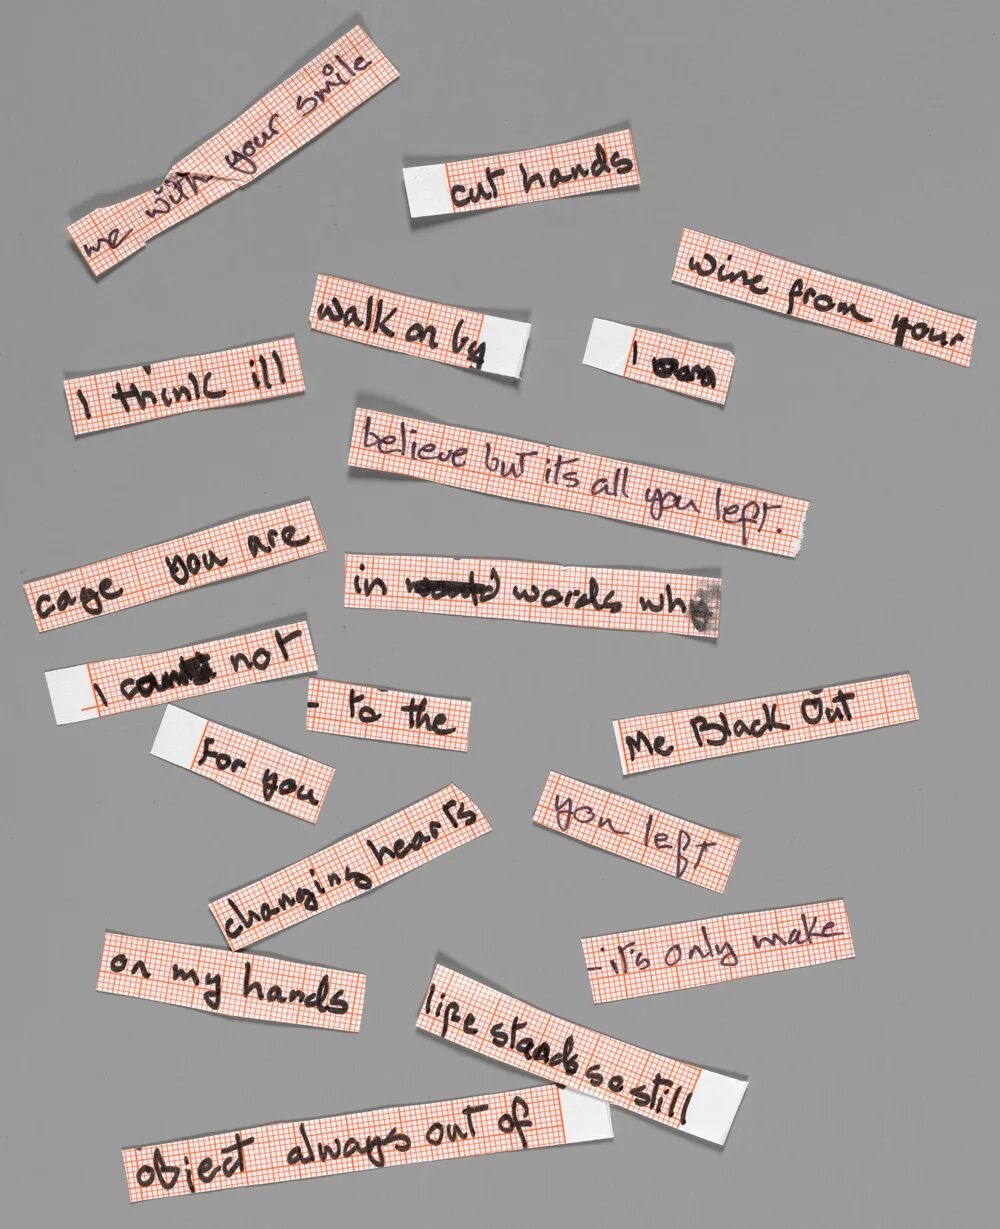 me with your smile
cut hands
wine from your
walk on by
I
I think ill
believe but its all you left.
cage you are
in words wh
I not
- to the
Me Black Out
for you
you left
changing hearts
- it's only make
on my hands
life stands so still
object always out of